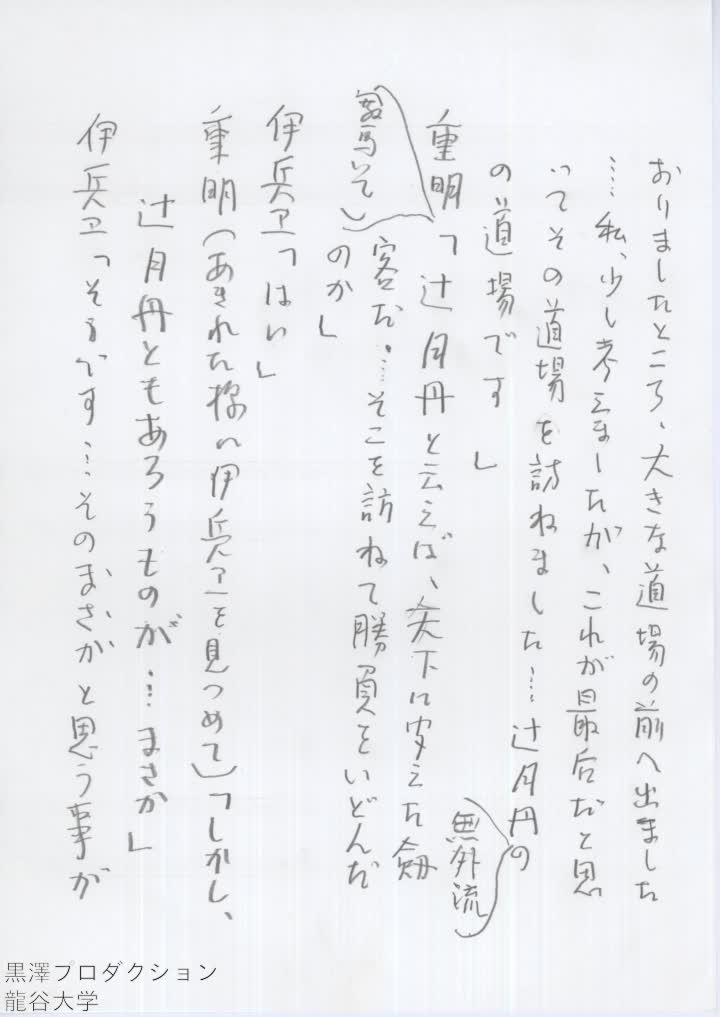 おりましたところ、大きな道場の前へ出ました
…私、少し考えましたが、これが最后だと思
ってその道場を訪ねました…辻月丹の
無外流
の道場です」
重明「辻月丹と云えば、天下に聞えた剣
(驚いて)
客だ…そこを訪ねて勝負をいどんだ
のか」
伊兵卫「はい」
重明(あきれた様に伊兵卫を見つめて)「しかし、
辻月丹ともあろうものが…まさか」
伊兵卫「そうです…そのまさかと思う事が
黒澤プロダクション
龍谷大学